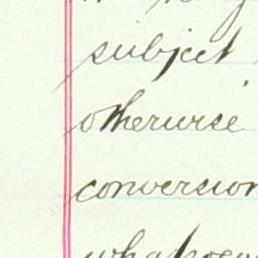 subject
otherwise
conversion